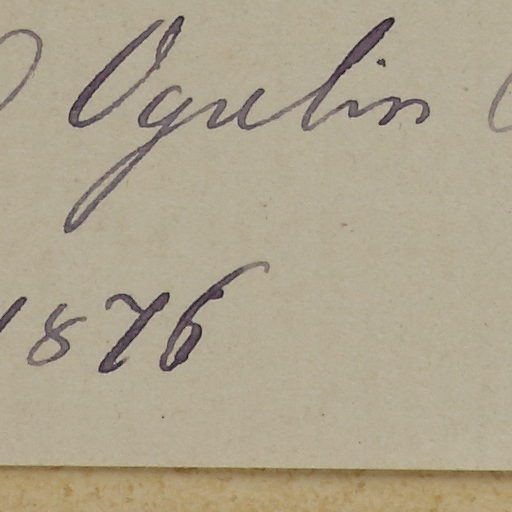 Ogrelin
1876